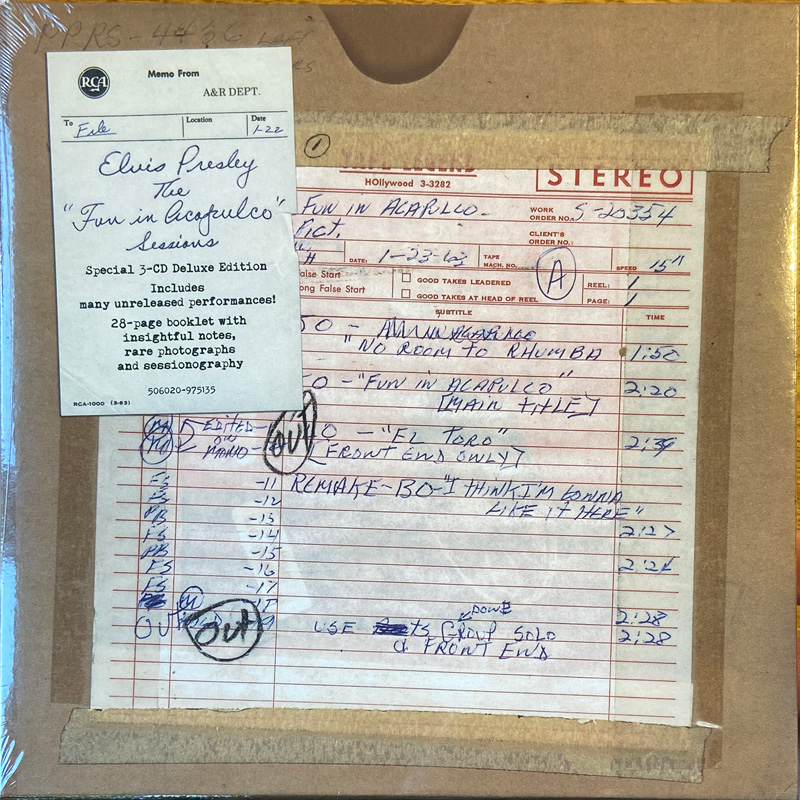 MPRS-4436
RCA
Memo From
A&R DEPT.
To File
Location
Date 1-22
Elvis Presley
The
"Fun in Acapulco"
Sessions
Special 3-CD Deluxe Edition
Includes
many unreleased performances!
28-page booklet with
insightful notes,
rare photographs
and sessionography
506020-975135
RCA-1000 (3-63)
1
TAPE LEGEND
HOllywood 3-3282
STEREO
FUN IN ACAPULCO
WORK ORDER NO.: S-20354
Pict.
CLIENT'S ORDER NO.:
H
DATE: 1-23-63
TAPE MACH. NO. A
SPEED 15"
alse Start
ong False Start
GOOD TAKES LEADERED
GOOD TAKES AT HEAD OF REEL
REEL: 1
PAGE: 1
SUBTITLE
TIME
O -
"NO ROOM TO RHUMBA 1:50
O - "FUN IN ACAPULCO" 2:20
[MAIN TITLE]
EDITED OUT O - "EL TORO" 2:39
ON MONO [FRONT END ONLY]
FS -11 REMAKE - BO - "I THINK I'M GONNA
FS -12 LIKE IT HERE"
PB -13 2:27
FS -14
PB -15 2:26
FS -16
FS -17
M 2:28
DOWE
OUT OUT USE GROUP SOLO 2:28
FRONT END